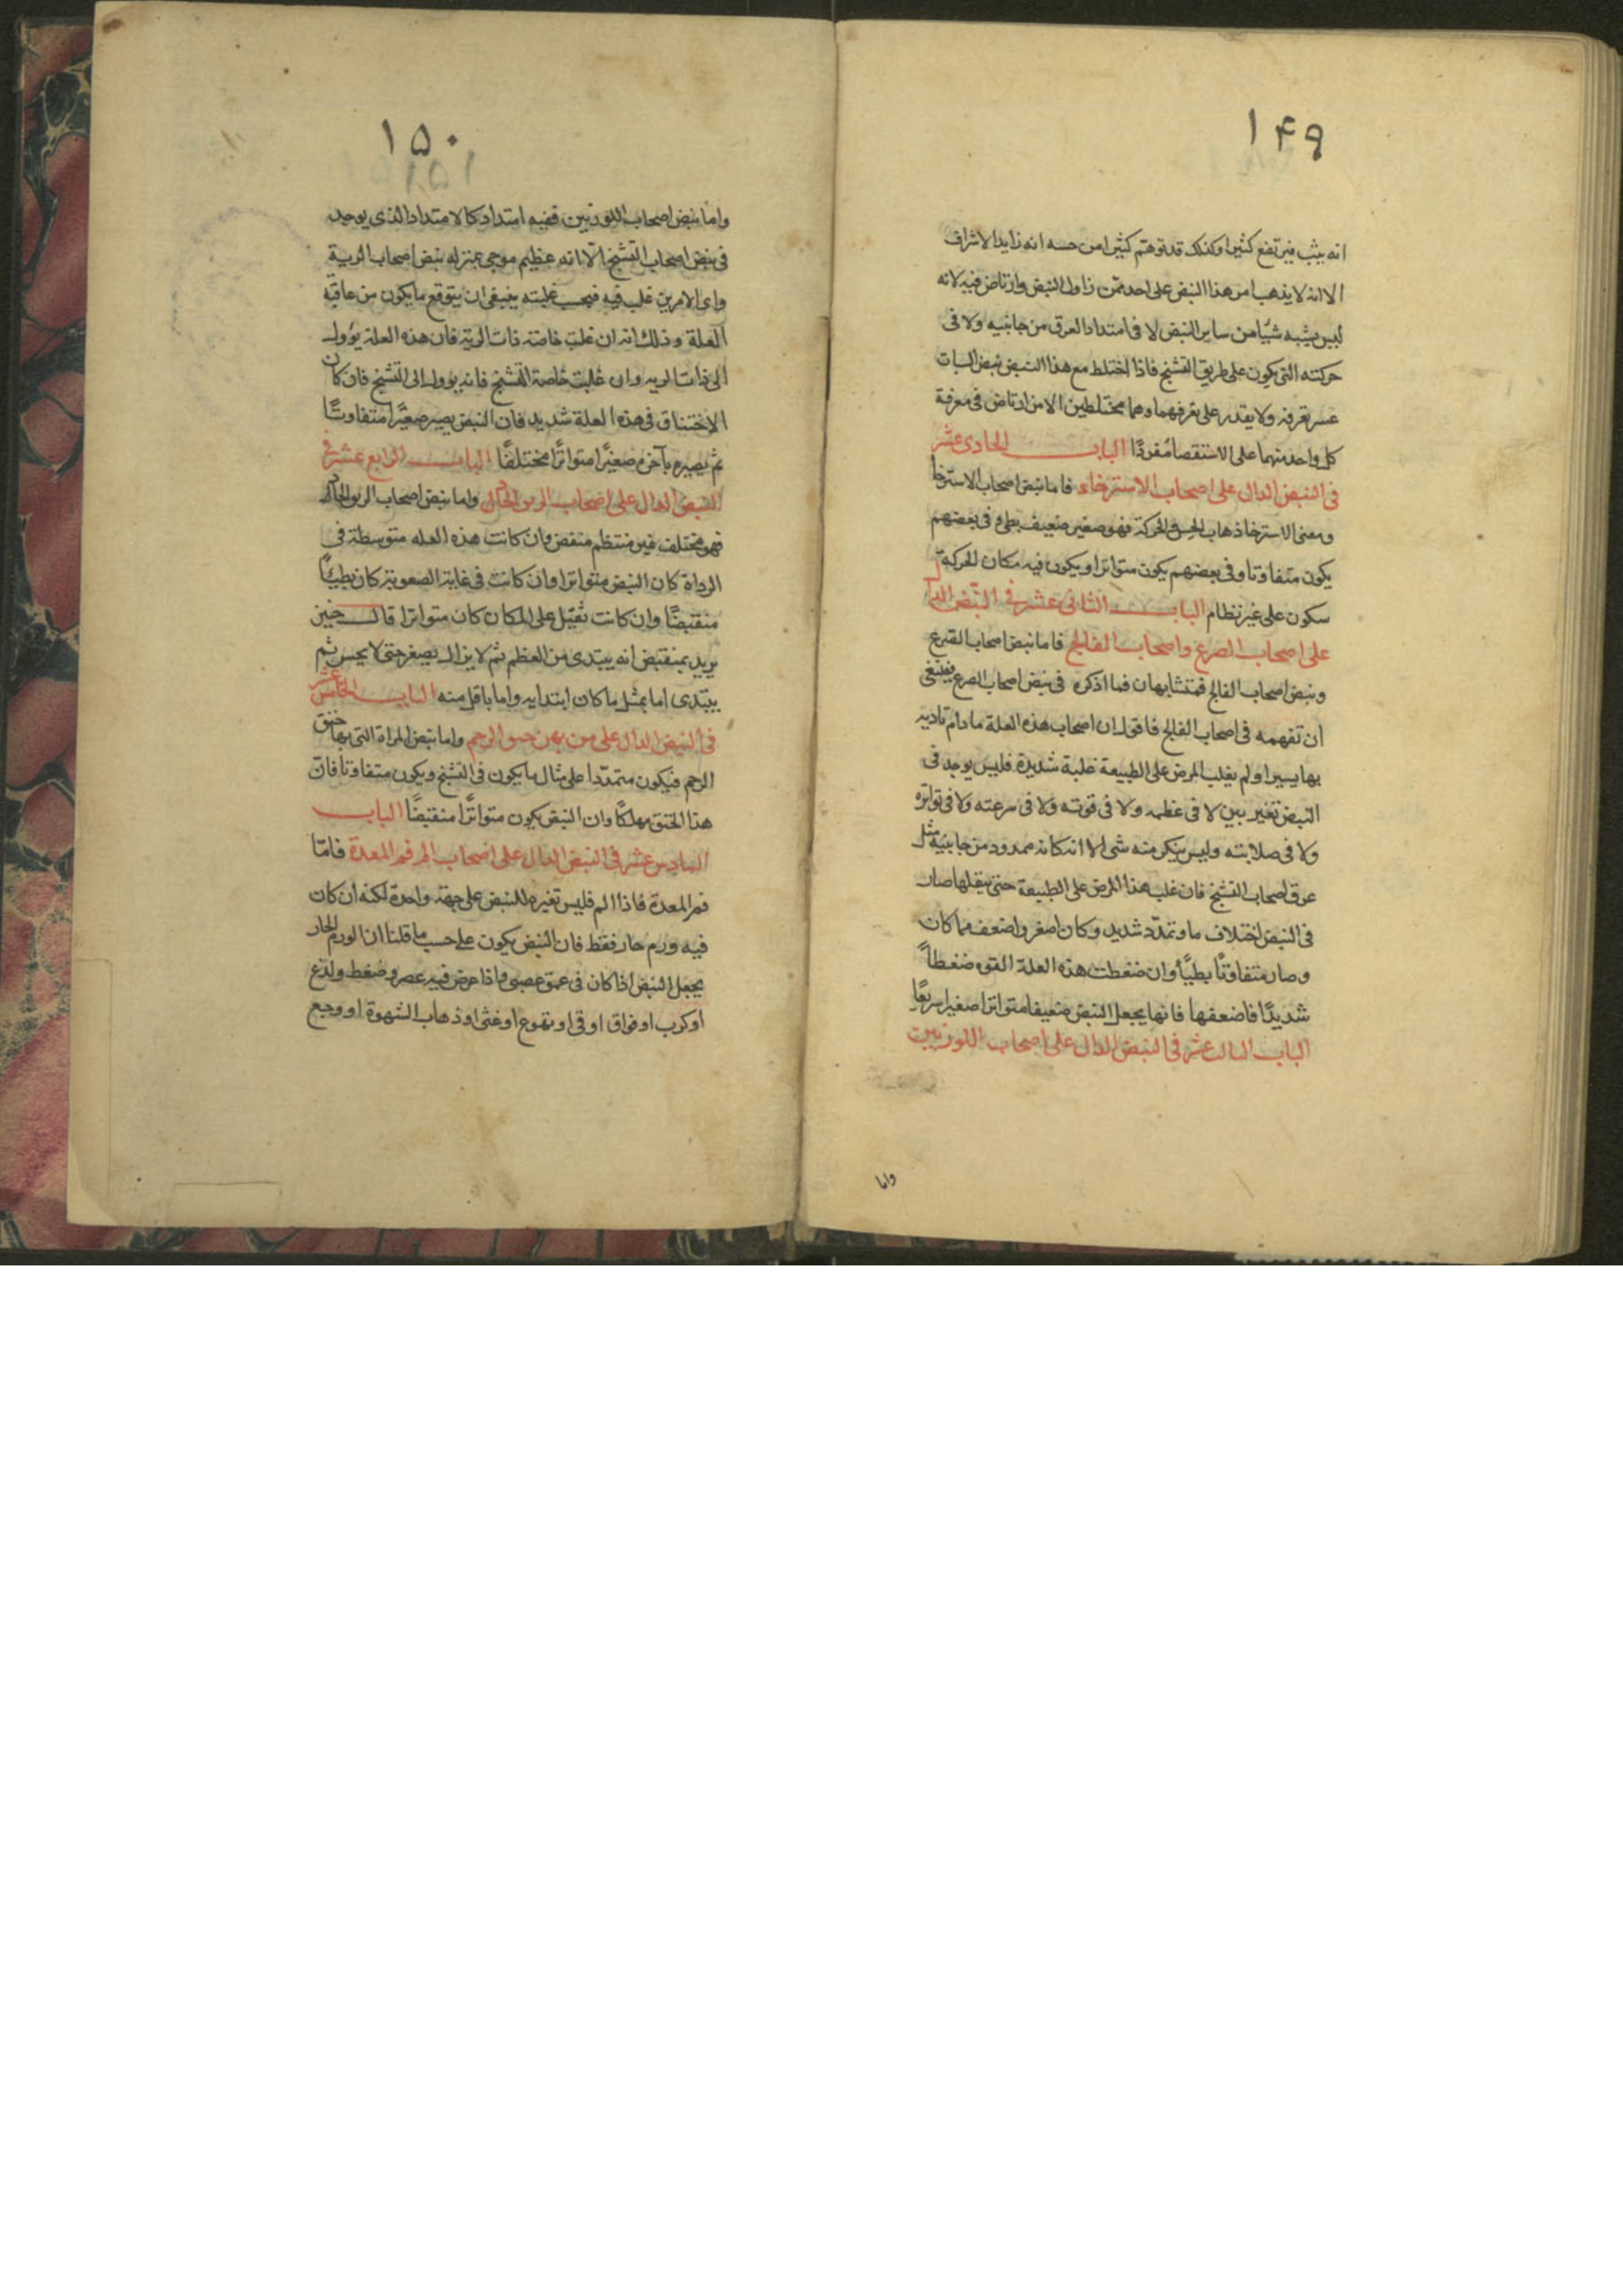 ١۴٩
انه يثب فيرتفع كثيرا وكذلك قد توهم كثيرا من حسه انه زايد الاشراف
الا انه لا يذهب امر هذا النبض على احد ممن زاول النبض وارتاض فيه لانه
ليس يشبه شيئا من ساير النبض لا فى امتداد العرق من جانبيه ولا فى
حركته التى يكون على طريق التشنج فاذا اختلط مع هذا النبض نبض السبات
عسر تعرفه ولا يقدر على تعرفهما وهما مختلطين الا من ارتاض فى معرفة
كل واحد منهما على الاستقصا مفردًا الباب الحادى عشر
فى النبض الدال على اصحاب الاسترخاء فاما نبض اصحاب الاسترخا
ومعنى الاسترخا ذهاب الحس والحركة فهو صغير ضعيف بطى وفى بعضهم
يكون متفاوتا وفى بعضهم يكون متواترا ويكون فيه مكان الحركة
سكون على غير نظام الباب الثانى عشر فى النبض الدال
على اصحاب الصرع واصحاب الفالج فاما نبض اصحاب الصرع
ونبض اصحاب الفالج فمتشابهان فما اذكره فى نبض اصحاب الصرع فينبغى
ان تفهمه فى اصحاب الفالج فاقول ان اصحاب هذه العلة ما دام تاذيه
بها يسيرا ولم يغلب المرض على الطبيعة غلبة شديدة فليس يوجد فى
النبض تغير بين لا فى عظمه ولا فى قوته ولا فى سرعته ولا فى تواتره
ولا فى صلابته وليس ينكر منه شى الا انه كانه ممدود من جانبيه مثل
عرق اصحاب التشنج فان غلب هذا المرض على الطبيعة حتى يثقلها صار
فى النبض اختلاف ما وتمدّد شديد وكان اصغر واضعف مما كان
وصار متفاوتًا بطيًا وان ضغطت هذه العلة القوه ضغطاً
شديدًا فاضعفها فانها يجعل النبض ضعيفا متواترا صغيرا سريعًا
الباب الثالث عشر فى النبض الدال على اصحاب اللوزتين
واما
١۵٠
١۵١
واما نبض اصحاب اللوزتين ففيه امتداد كالامتداد الذى يوجد
فى نبض اصحاب التشنج الا انه عظيم موجى بمنزله نبض اصحاب الرية
واى الامرين غلب فيه فبحسب غلبته ينبغى ان يتوقع ما يكون من عاقبة
العلة وذلك انه ان غلبت خاصة ذات الرية فان هذه العلة يؤول
الى ذات الريه وان غلبت خاصة التشنج فانه يوول الى التشنج فان كان
الاختناق فى هذه العلة شديد فان النبض يصير صغيرًا متفاوتًا
ثم يصير بآخره صغيرًا متواترًا مختلفًا الباب الرابع عشر فى
النبض الدال على اصحاب الربو الحال واما نبض اصحاب الربو
فهو مختلف غير منتظم منقض وان كانت هذه العله متوسطة فى
الرداة كان النبض متواترا وان كانت فى غاية الصعوبة كان بطيئًا
منقبضًا وان كانت ثقيل على المكان كان متواترا قال حنين
يريد بمنقبض انه يبتدى من العظم ثم لا يزال يصغر حتى لا يحس ثم
يبتدى اما بمثل ما كان ابتدايه واما باقل منه الباب الخامس عشر
فى النبض الدال على من بهن خنق الرحم واما نبض المراة التى بها خنق
الرحم فيكون متمدّدا على مثال ما يكون فى التشنج ويكون متفاوتا فان
هذا الخنق مهلكًا وان النبض يكون متواترًا منقبضًا الباب
السادس عشر فى النبض الدال على اصحاب الم فم المعدة فامّا
فم المعدة فاذا الم فليس تغيره للنبض على جهة واحدة لكنه ان كان
فيه ورم حار فقط فان النبض يكون على حسب ما قلنا ان الورم الحار
يجعل النبض اذا كان فى عضو عصبى واذا عرض فيه عصر وضغط ولذع
او كرب او فواق او قى او تهوع او غثى او ذهاب الشهوة او وجع